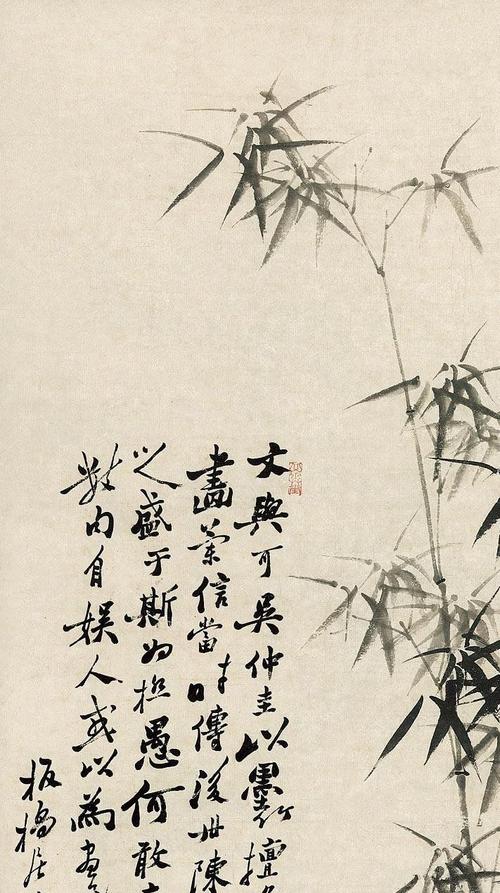 文與可吳仲圭以墨竹擅
畫蘭信當時傳後世陳
之盛于斯為極愚何敢
數內自娛人或以為畫
板橋居